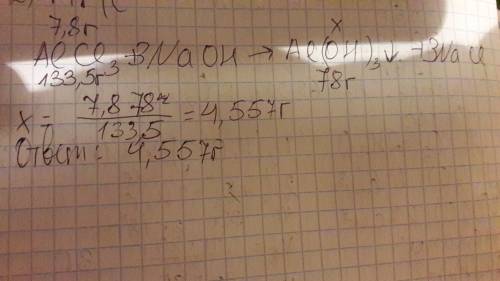 7,8г х
AlCl₃ + 3NaOH → Al(OH)₃↓ + 3NaCl
133,5г 78г
х = 7,8 78г / 133,5 = 4,557г
Ответ: 4,557г